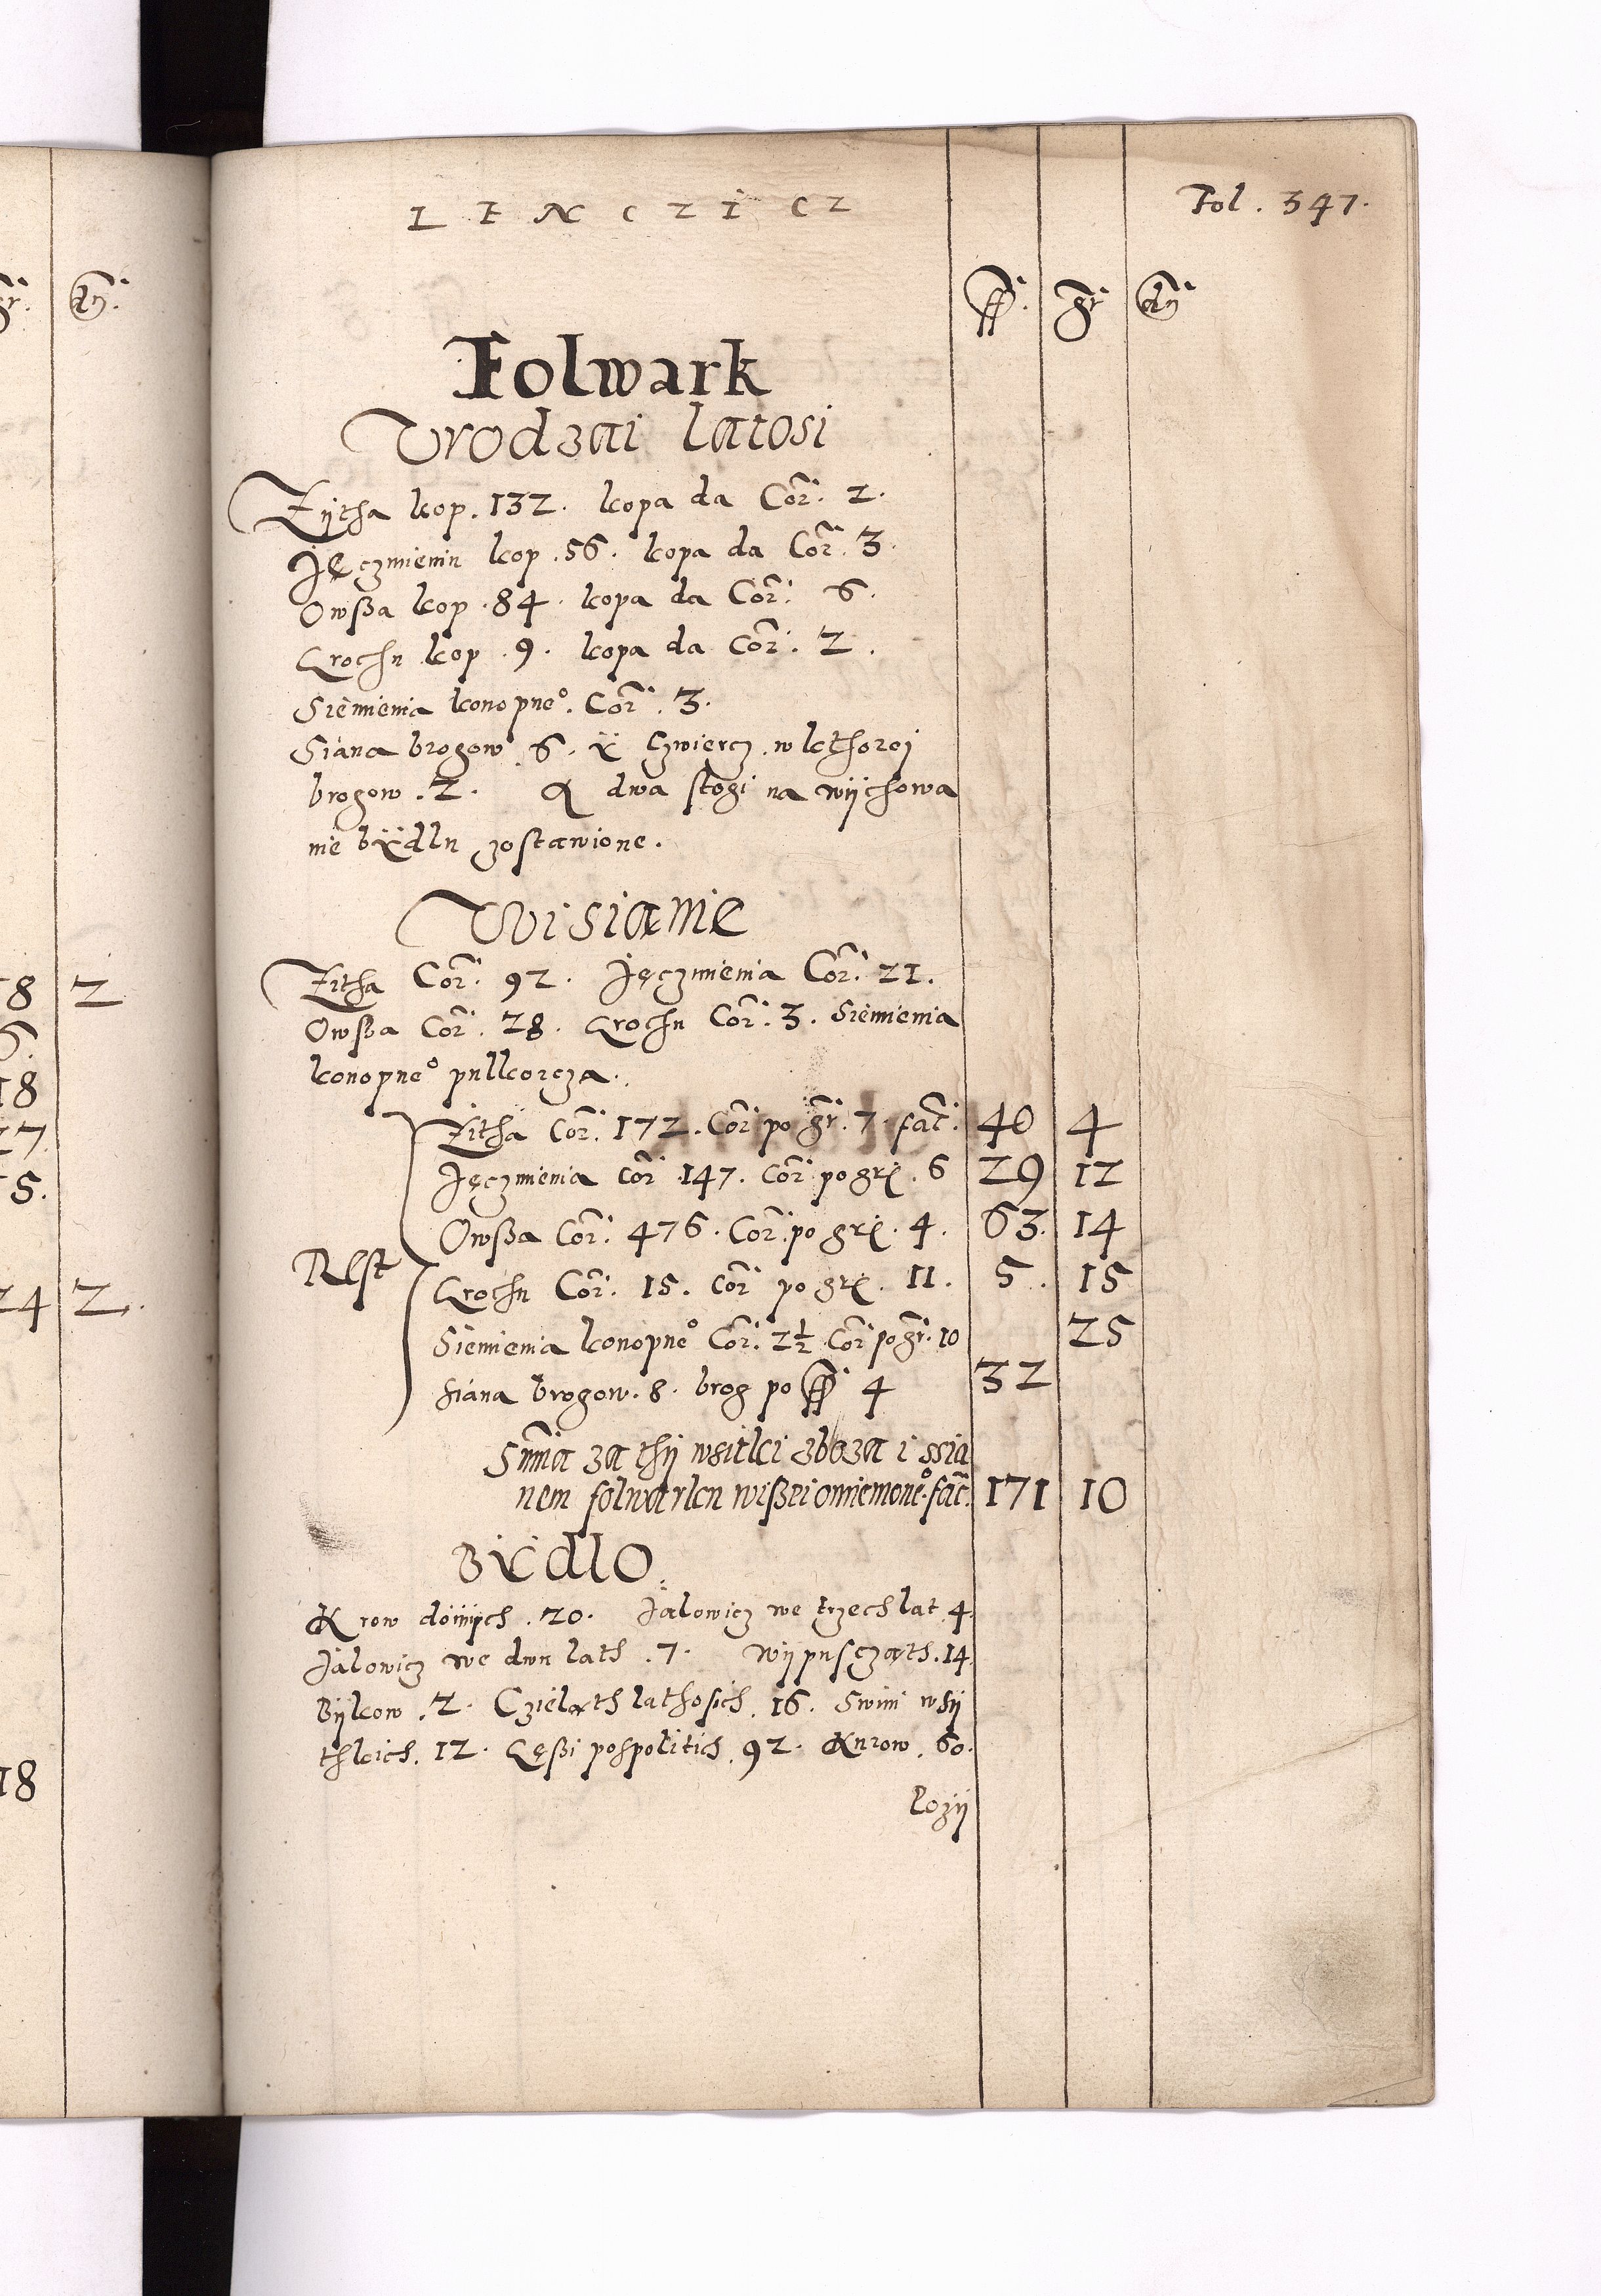 LENCZICZ
Fol. 347.
ff. gr dn
Folwark
Vrodzai latosi
Zytha kop. 132. kopa da Cor. 2.
Jęczmieniu kop. 56. kopa da Cor. 3.
Owssa kop. 84. kopa da Cor. 6.
Grochu kop. 9. kopa da Cor. 2.
Siemienia konopneo. Cor. 3.
Siana brogow. 6. y czwiercz. w kthorei
brogow. 2. A dwa stogi na wychowa
nie bÿdlu zostawione.
Wisianie
Zitha Cor. 92. Jęczmienia Cor. 21.
Owssa Cor. 28. Grochu Cor. 3. Siemienia
konopneo pulkorcza.
Zitha Cor. 172. Cor po gr. 7. fac. 40 4
Jęczmienia cor 147. Cor po gr. 6 29 12
Owssa Cor. 476. Cor. po gr. 4. 63. 14
Rest
Grochu Cor. 15. cor po gr. 11. 5. 15
Siemienia konopneo Cor. 2½ Cor po gr. 10 25
siana brogow. 8. brog po ff 4 32
Suma za thy wsitki zboza i ssia
nem folwarku wissei omienioneo. fac. 171 10
Bÿdlo
Krow doinych. 20. Jalowicz we trzech lat 4.
Jalowicz we dwu lath. 7. Wypusczath. 14.
Bykow. 2. Czielath lathosich. 16. Swini wsy
thkich. 12. Gęssi pospolitich. 92. Kurow. 60.
Lozy
8 2
18
27
5.
24 2.
18
gr. dn.